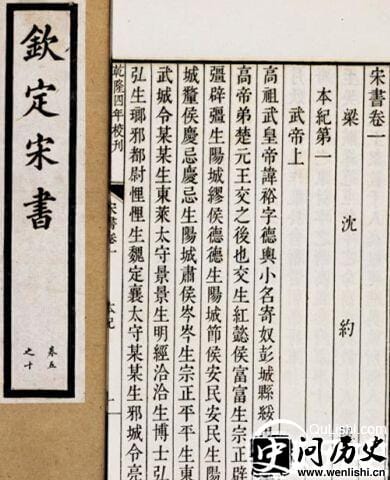 宋書卷一
梁 沈 約
本紀第一
武帝上
高祖武皇帝諱裕字德輿小名寄奴彭城縣綏
高帝弟楚元王交之後也交生紅懿侯富富生宗正辟
彊辟彊生陽城繆侯德德生陽城節侯安民安民生陽
城釐侯慶忌慶忌生陽城肅侯岑岑生宗正平平生東
武城令某某生東萊太守景景生明經洽洽生博士弘
弘生瑯邪都尉悝悝生魏定襄太守某某生邪城令亮
乾隆四年校刊 宋書卷一 本紀 一
欽定宋書
卷五
之十
QuLishi.com
问历史
www.wenlishi.cn